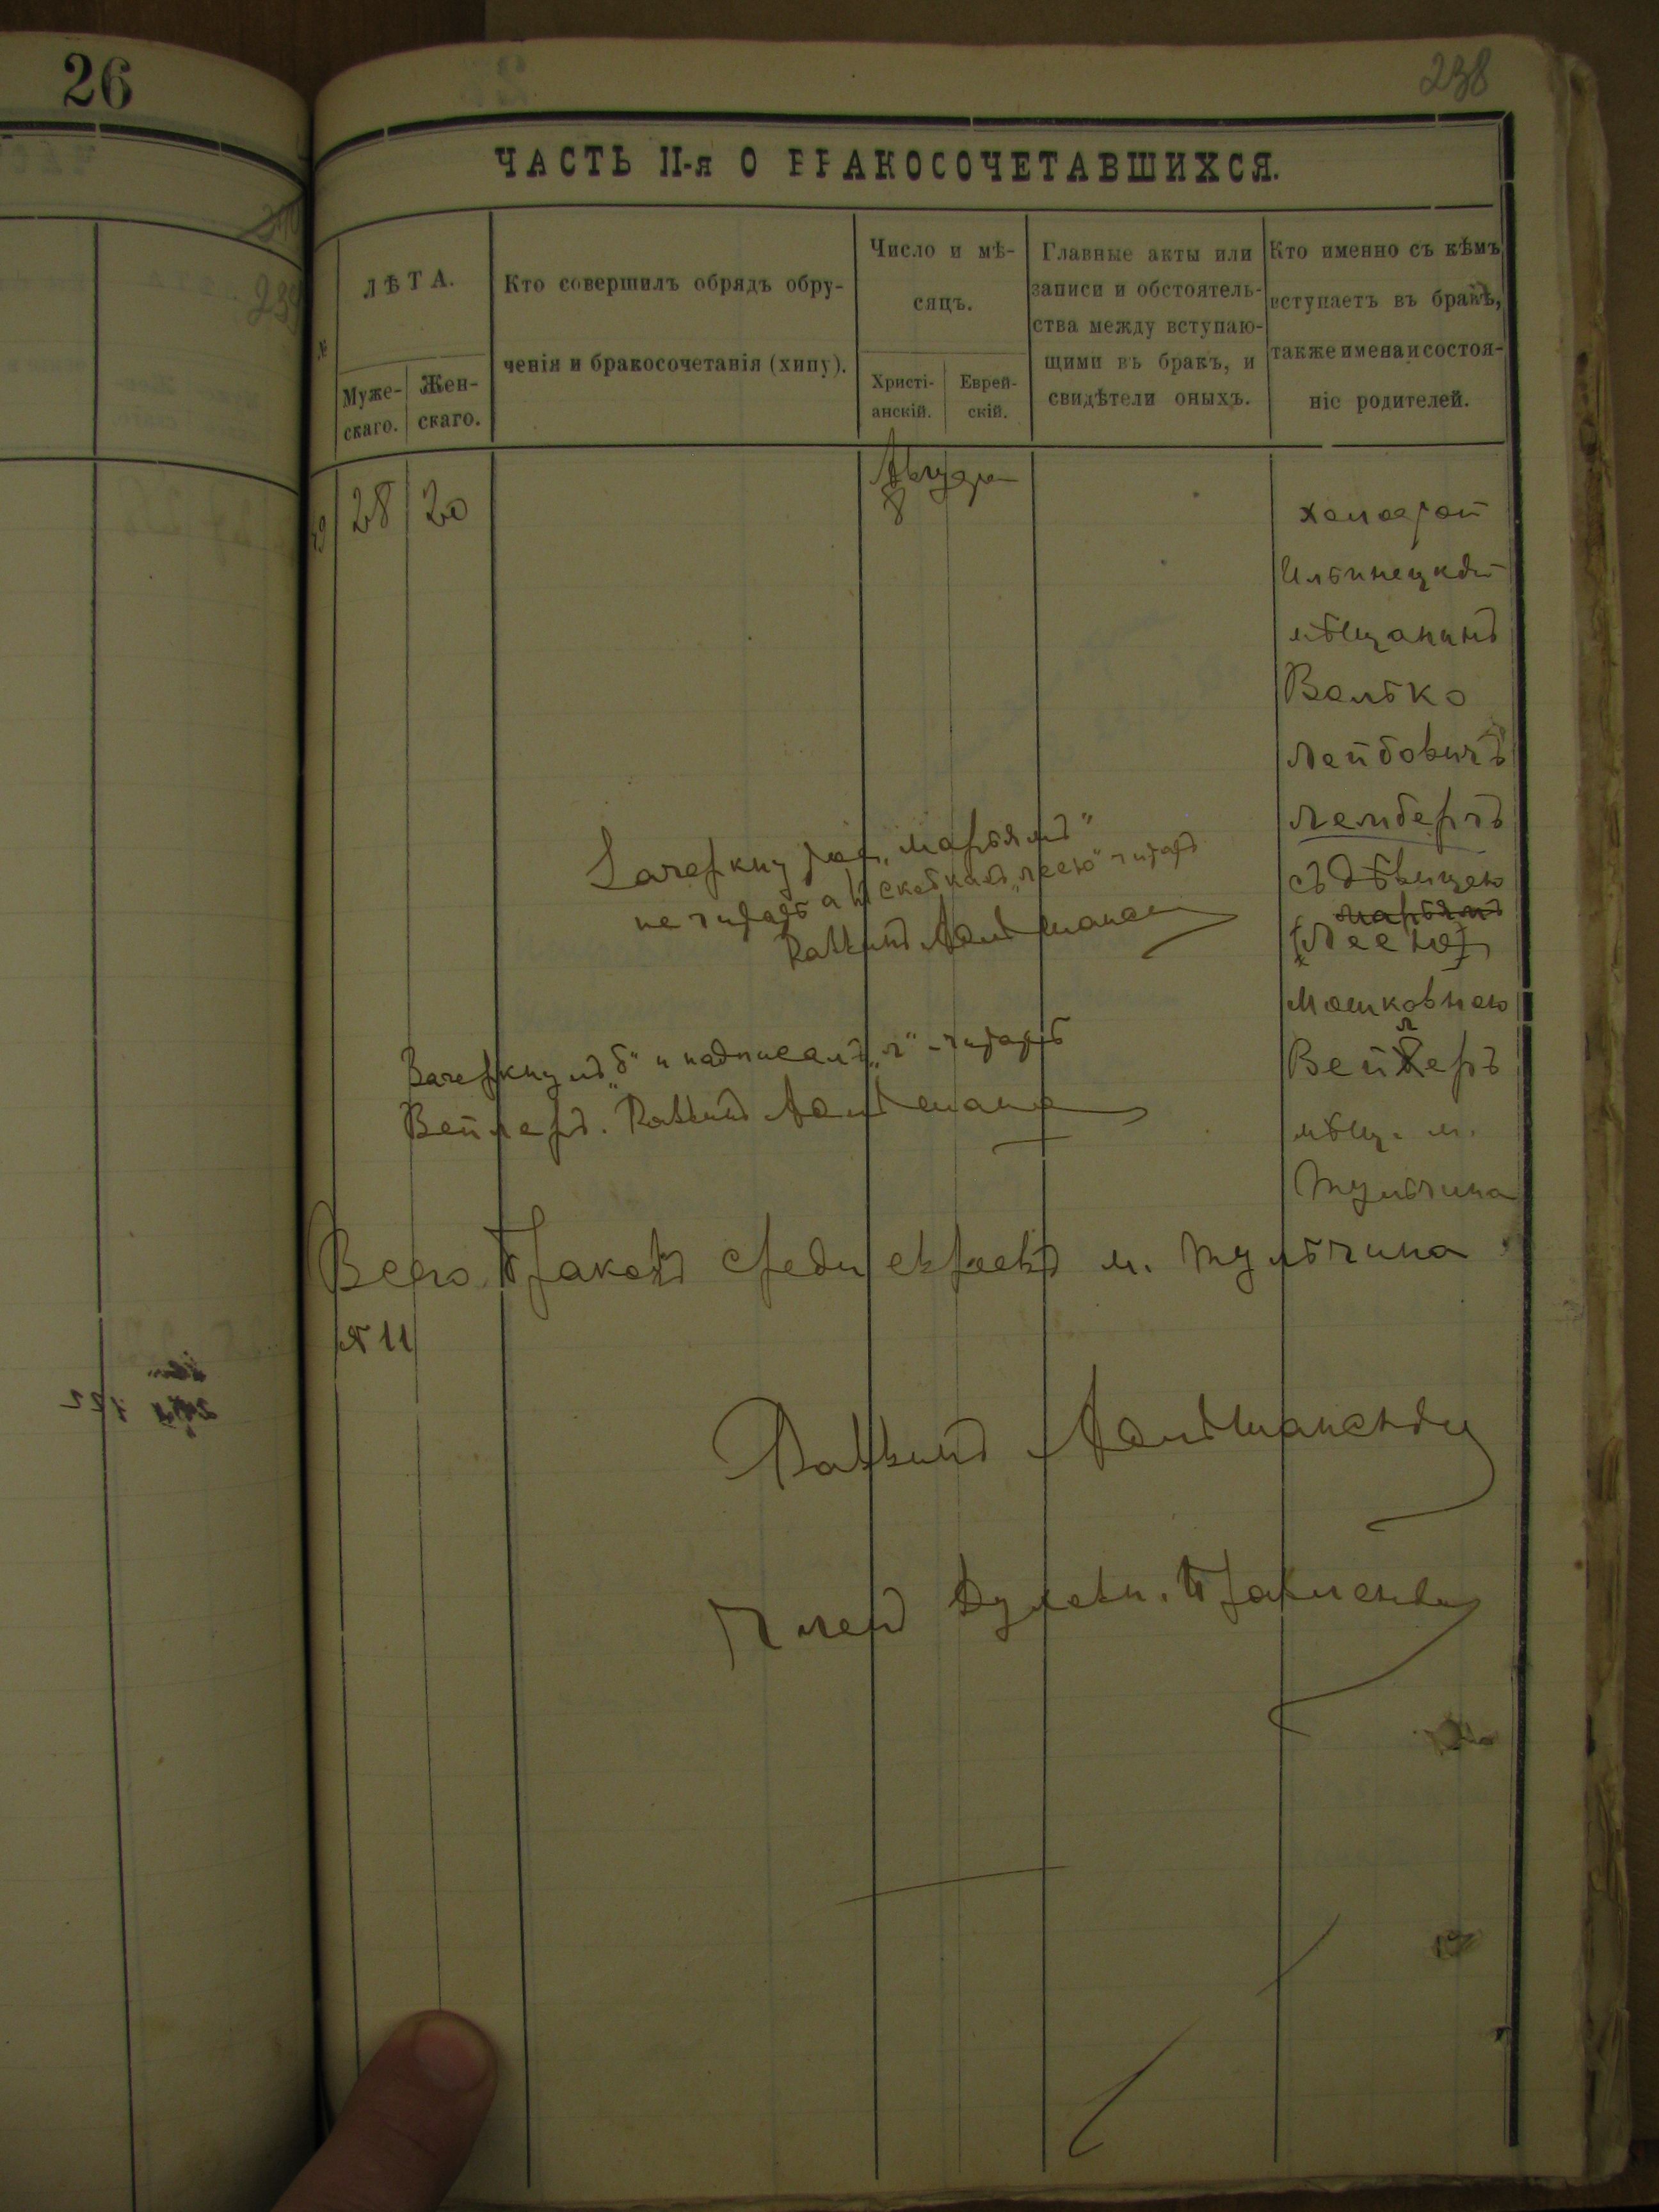 26
238
239
ЧАСТЬ II-я О БРАКОСОЧЕТАВШИХСЯ.
№
ЛѢТА.
Муже-
скаго.
Жен-
скаго.
Кто совершилъ обрядъ обру-
ченія и бракосочетанія (хипу).
Число и мѣ-
сяцъ.
Христі-
анскій.
Еврей-
скій.
Главные акты или
записи и обстоятель-
ства между вступаю-
щими въ бракъ, и
свидѣтели оныхъ.
Кто именно съ кѣмъ
вступаетъ въ бракъ,
также имена и состоя-
ніе родителей.
28
20
Августа
8
холостой
Ильинецкій
мѣщанинъ
Волько
Лейбовичъ
Лембергъ
съ дѣвицею
Марьямъ
[Леею]
Мошковною
Вейберъ
л
мѣщ. м.
Тульчина
Зачеркнутое „Марьямъ"
не читать а въ скобкахъ „Леею" читать
Раввинъ
Зачеркнулъ „б" и надписалъ „л" - читать
Вейлеръ. Раввинъ
Всего браковъ среди евреевъ м. Тульчина
№ 11
Раввинъ
Членъ Духовн. Правленія